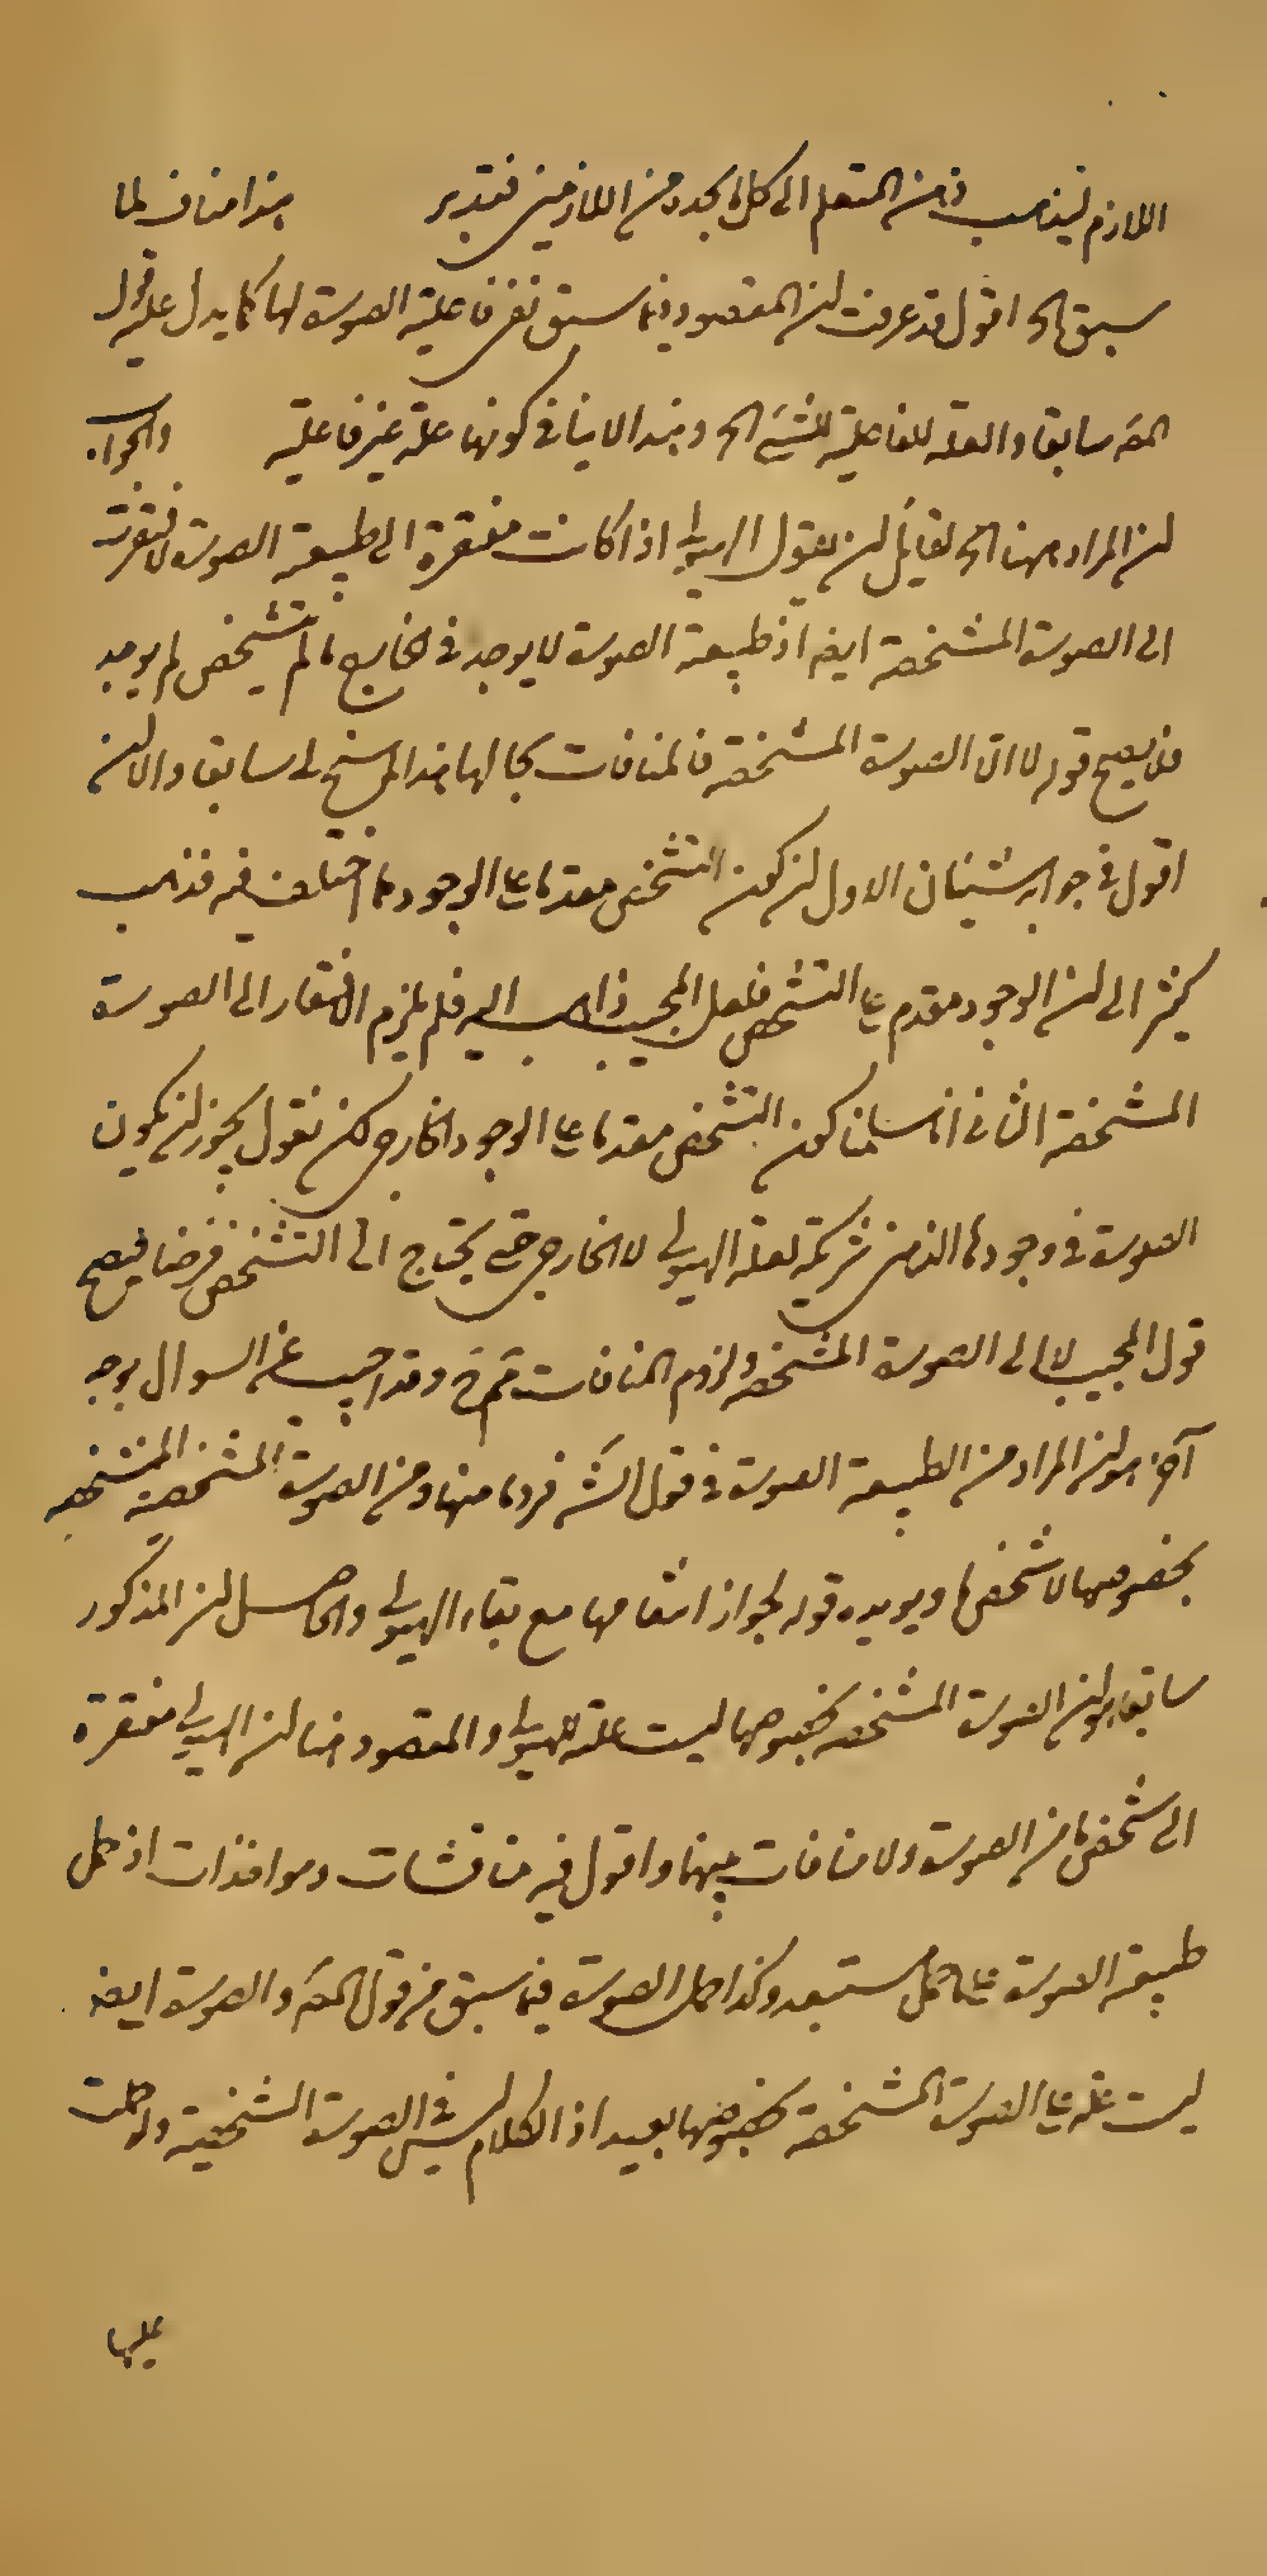 اللازم ليذهب ذهن المتعلم الى كل ما يجده من اللازمين فتدبر هذا مناف لما
سبق الخ اقول قد عرفت ان المقصود فيما سبق نفى فاعلية الصورة لها كما يدل عليه قول
المص سابقا والعلة الفاعلية للشئ الخ وهذا لا ينافى كونها علة غير فاعلية والجواب
ان المراد ههنا الخ لقائل ان يقول الهيولى اذا كانت مفتقرة الى طبيعة الصورة لافتقرت
الى الصورة المشخصة ايضا اذ طبيعة الصورة لا يوجد فى الخارج ما لم تشخص لم يوجد
فلن يصح قوله لا الى الصورة المشخصة فالمنافات بحالها هذا ما سنح لى سابقا والآن
اقول فى جوابه شيئان الاول ان كون التشخص مقدما على الوجود مما اختلف فيه فذهب
كثير الى ان الوجود مقدم على التشخص فلعل المجيب ذاهب اليه فلم يلزم الافتقار الى الصورة
المشخصة الثانى انا سلمنا كون التشخص مقدما على الوجود الخارجى لكن نقول يجوز ان يكون
الصورة فى وجودها الذهنى شريكة لعلة الهيولى لا الخارجى حتى يحتاج الى التشخص فرضا فيصح
قول المجيب لا الى الصورة المشخصة ولزوم المنافات ثم وقد اجيب عن السوال بوجه
آخر هو ان المراد من الطبيعة الصورة فى قول الش فرد ما منها ومن الصورة المشخصة المشخصة
بخصوصها لا شخص ما ويويده قوله لجواز انتفائها مع بقاء الهيولى والحاصل ان المذكور
سابقا هو ان الصورة المشخصة بخصوصها ليست علة للهيولى والمقصود هنا ان الهيولى مفتقرة
الى شخص ما من الصورة ولا منافات بينهما واقول فيه مناقشات وموافذات اذ حمل
طبيعة الصورة على محمل مستبعد وكذا حمل الصورة فيما سبق من قول المص والصورة ايضا
ليست علة على الصورة المشخصة بخصوصها بعيد اذ الكلام ليس فى الصورة الشخصية والحمل
عليها